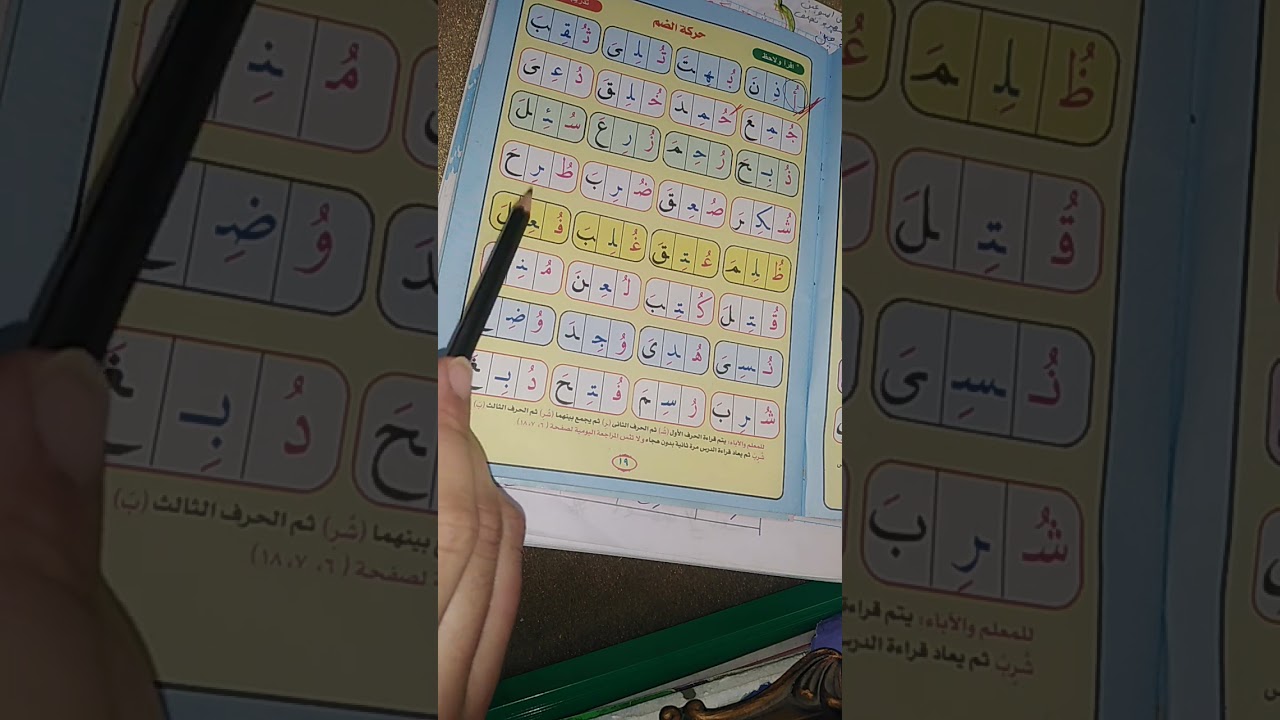 حركة الضم
اقرأ ولاحظ
أُذِنَ بُهِتَ تُلِىَ ثُقِبَ
جُمِعَ حُمِدَ خُلِقَ دُعِىَ
ذُبِحَ رُحِمَ زُرِعَ سُئِلَ
شُكِرَ صُعِقَ ضُرِبَ طُرِحَ
ظُلِمَ عُتِقَ غُلِبَ فُعِلَ
قُتِلَ كُتِبَ لُعِنَ مُنِ
نُسِىَ هُدِىَ وُجِدَ وُضِعَ
شُرِبَ رُسِمَ فُتِحَ دُبِغَ
للمعلم والأباء: يتم قراءة الحرف الأول (شُ) ثم الحرف الثانى (رِ) ثم يجمع بينهما (شُرِ) ثم الحرف الثالث (بَ)
شُرِبَ ثم يعاد قراءة الدرس مرة ثانية بدون هجاء ولا تنس المراجعة اليومية لصفحة (٦، ٧، ١٨)
١٩